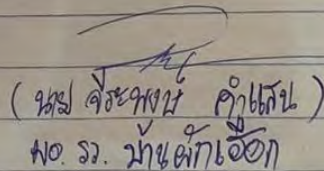 ( นาย จีระพงษ์ คำแสน )
ผอ. รว. บ้านผักเฮือก